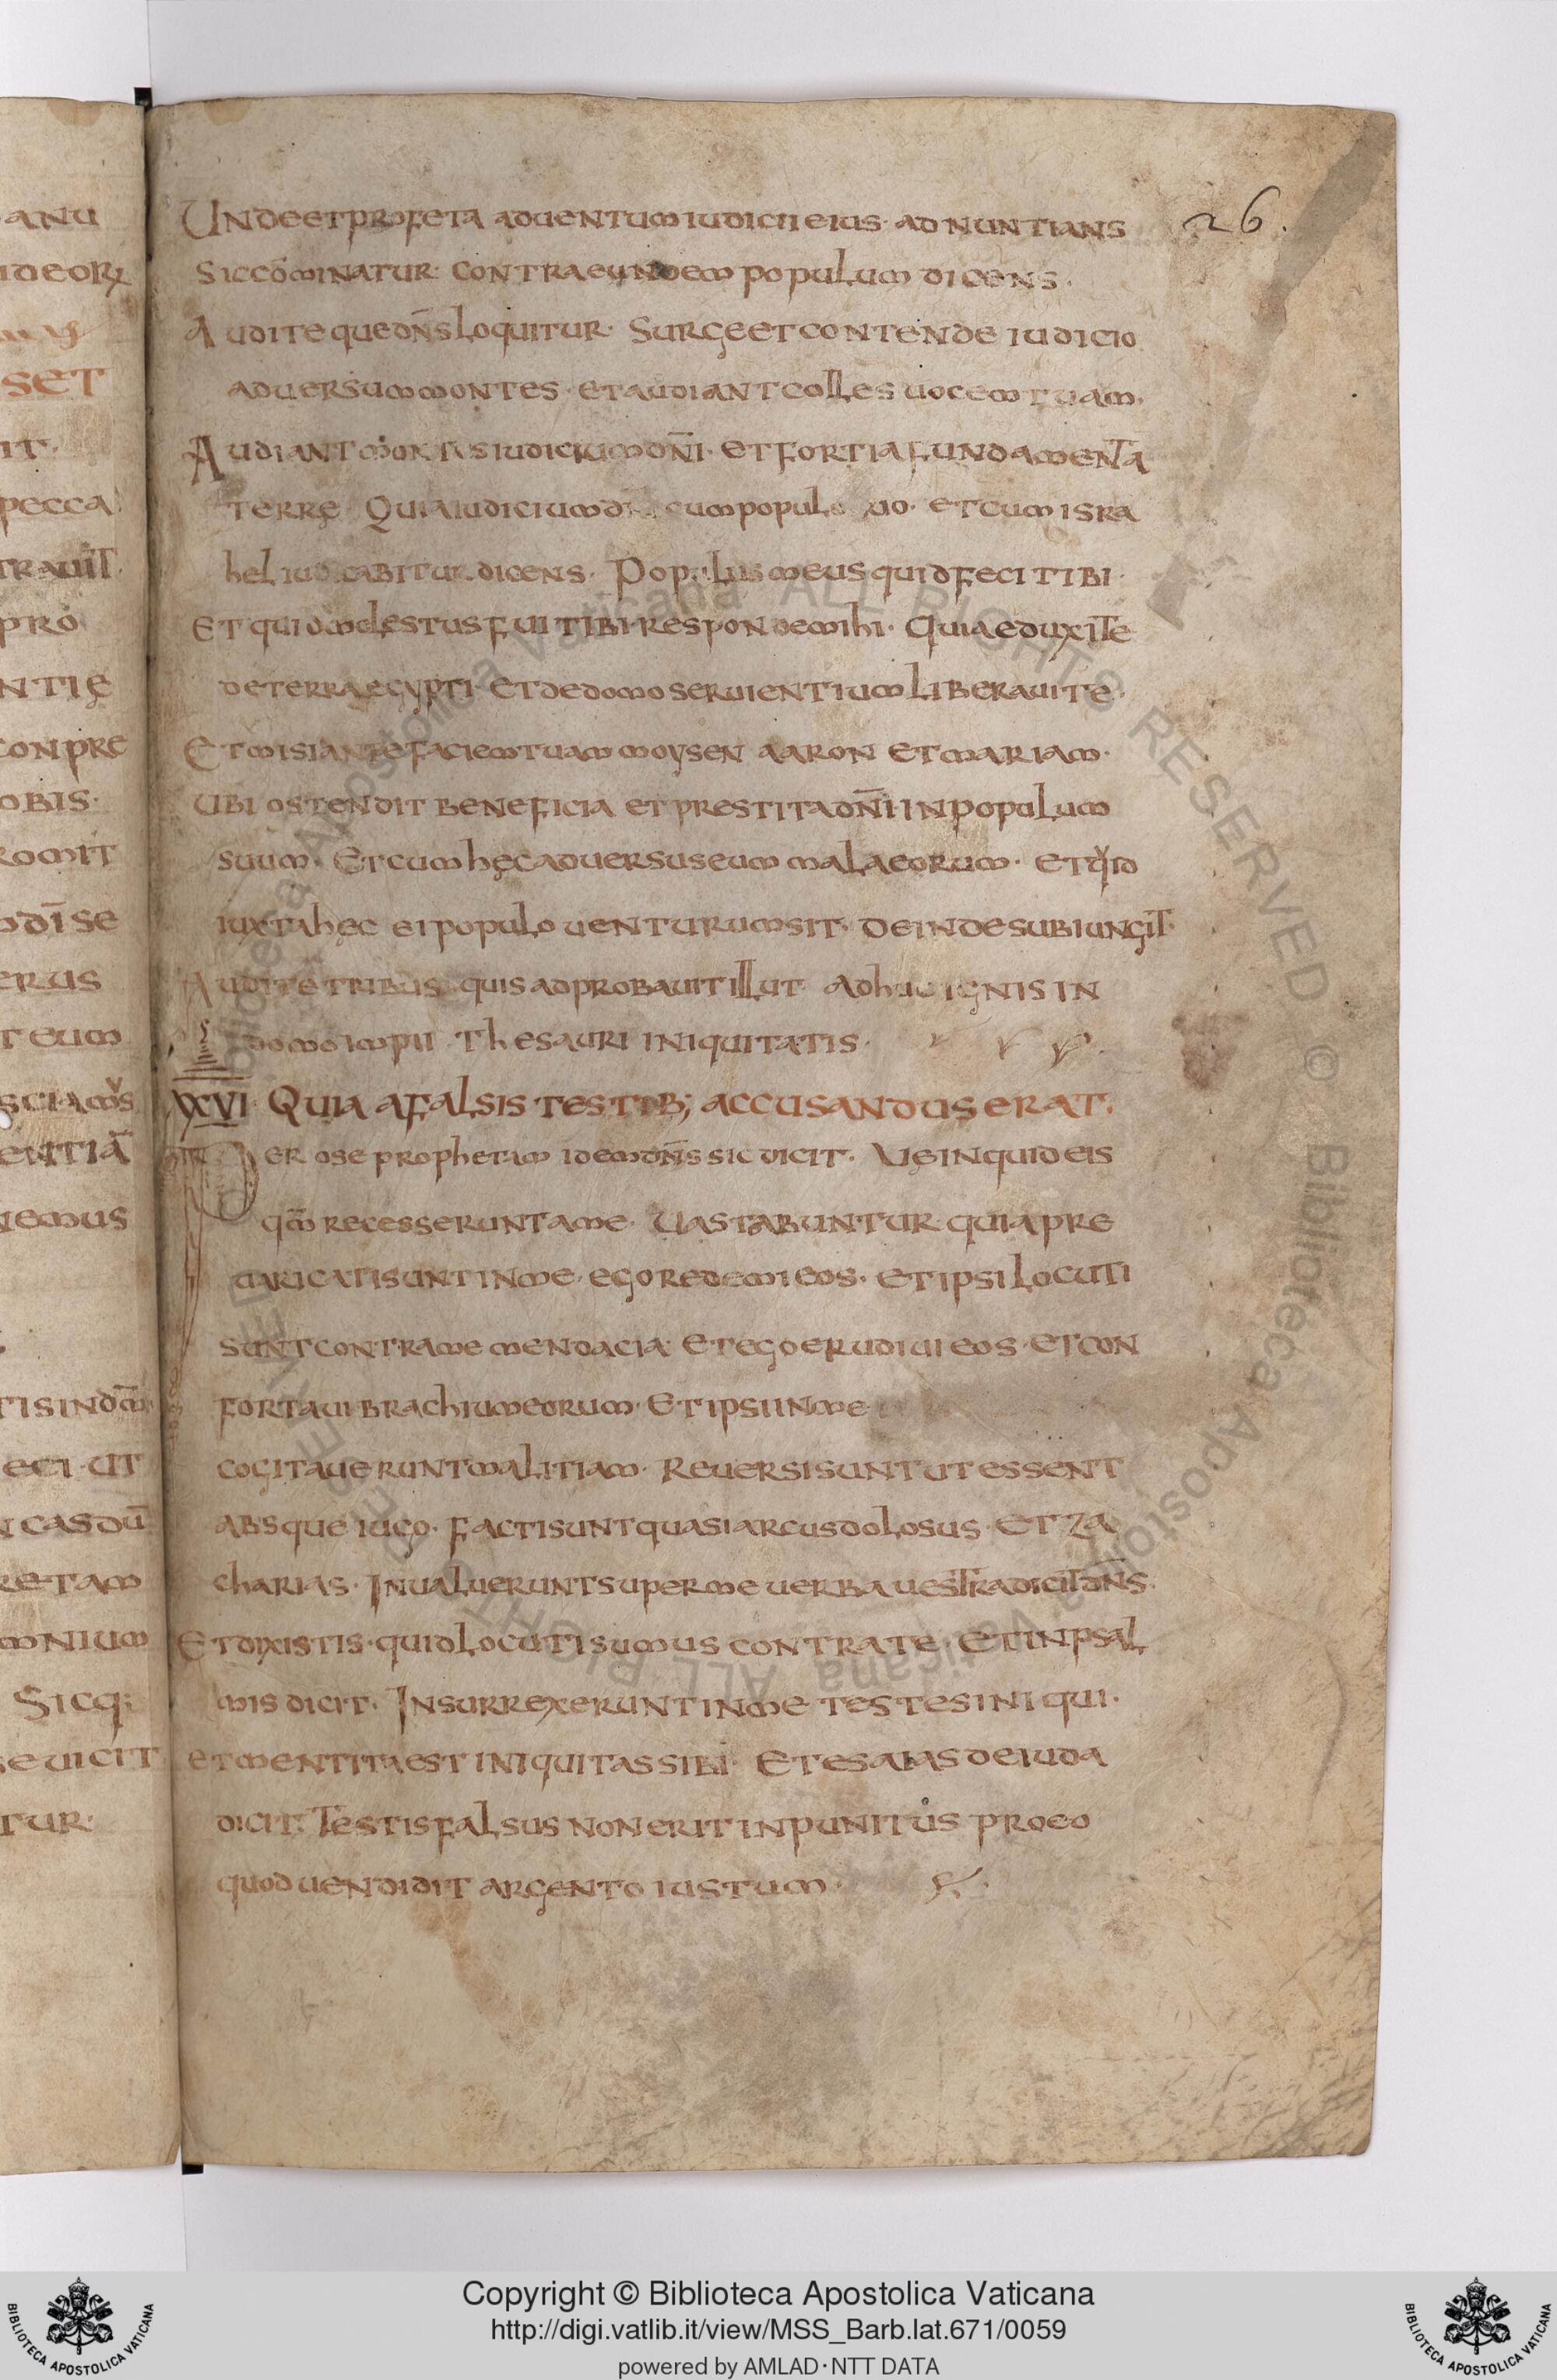 anu
ideorꝝ
set
it·
pecca
trauit·
pro
ntię
conpre
obis·
romit
dī se
erus
t eum
sciamꝰs
entiā
gemus
tis in dōm
eci· ut
casdū
retam
mnium
Sicq;
se uicit
tur·
26.
Unde et profeta aduentum iudicii eius· adnuntians
sic cōminatur· contra eundem populum dicens·
Audite que dn̄s loquitur· Surge et contende iudicio
aduersum montes· et audiant colles uocem tuam·
Audiant montes iudicium dn̄i· et fortia fundamenta
terre· Quia iudicium dn̄i cum populo suo· et cum isra
hel iudicabitur dicens· Populus meus quid feci tibi·
Et quid molestus fui tibi· responde mihi· Quia eduxi te
de terra egypti· et de domo seruientium liberaui te·
Et misi ante faciem tuam moysen aaron et mariam·
Ubi ostendit beneficia et prestita dn̄i in populum
suum· Et cum hęc aduersus eum mala eorum· et quid
iuxta hęc ei populo uenturum sit· deinde subiungit·
Audite tribus quis adprobauit illut· Adhuc ignis in
domo impii· Thesauri iniquitatis·
XXVI· Quia a falsis testib; accusandus erat·
Per ose prophetam idem dn̄s sic dicit· Uę inquid eis
qm̄ recesserunt a me· Uastabuntur· quia pre
uaricati sunt in me· ego redemi eos· et ipsi locuti
sunt contra me mendacia· Et ego erudiui eos· et con
fortaui brachium eorum· Et ipsi in me
cogitauerunt malitiam· Reuersi sunt ut essent
absque iugo· facti sunt quasi arcus dolosus· Et za
charias· Inualuerunt super me uerba uestra dicit dn̄s·
Et dixistis· quid locuti sumus contra te· Et in psal
mis dicit· Insurrexerunt in me testes iniqui·
et mentita est iniquitas sibi· Et esaias de iuda
dicit· Testis falsus non erit inpunitus pro eo
quod uendidit argento iustum·
Copyright © Biblioteca Apostolica Vaticana
http://digi.vatlib.it/view/MSS_Barb.lat.671/0059
powered by AMLAD·NTT DATA
BIBLIOTECA APOSTOLICA VATICANA
BIBLIOTECA APOSTOLICA VATICANA